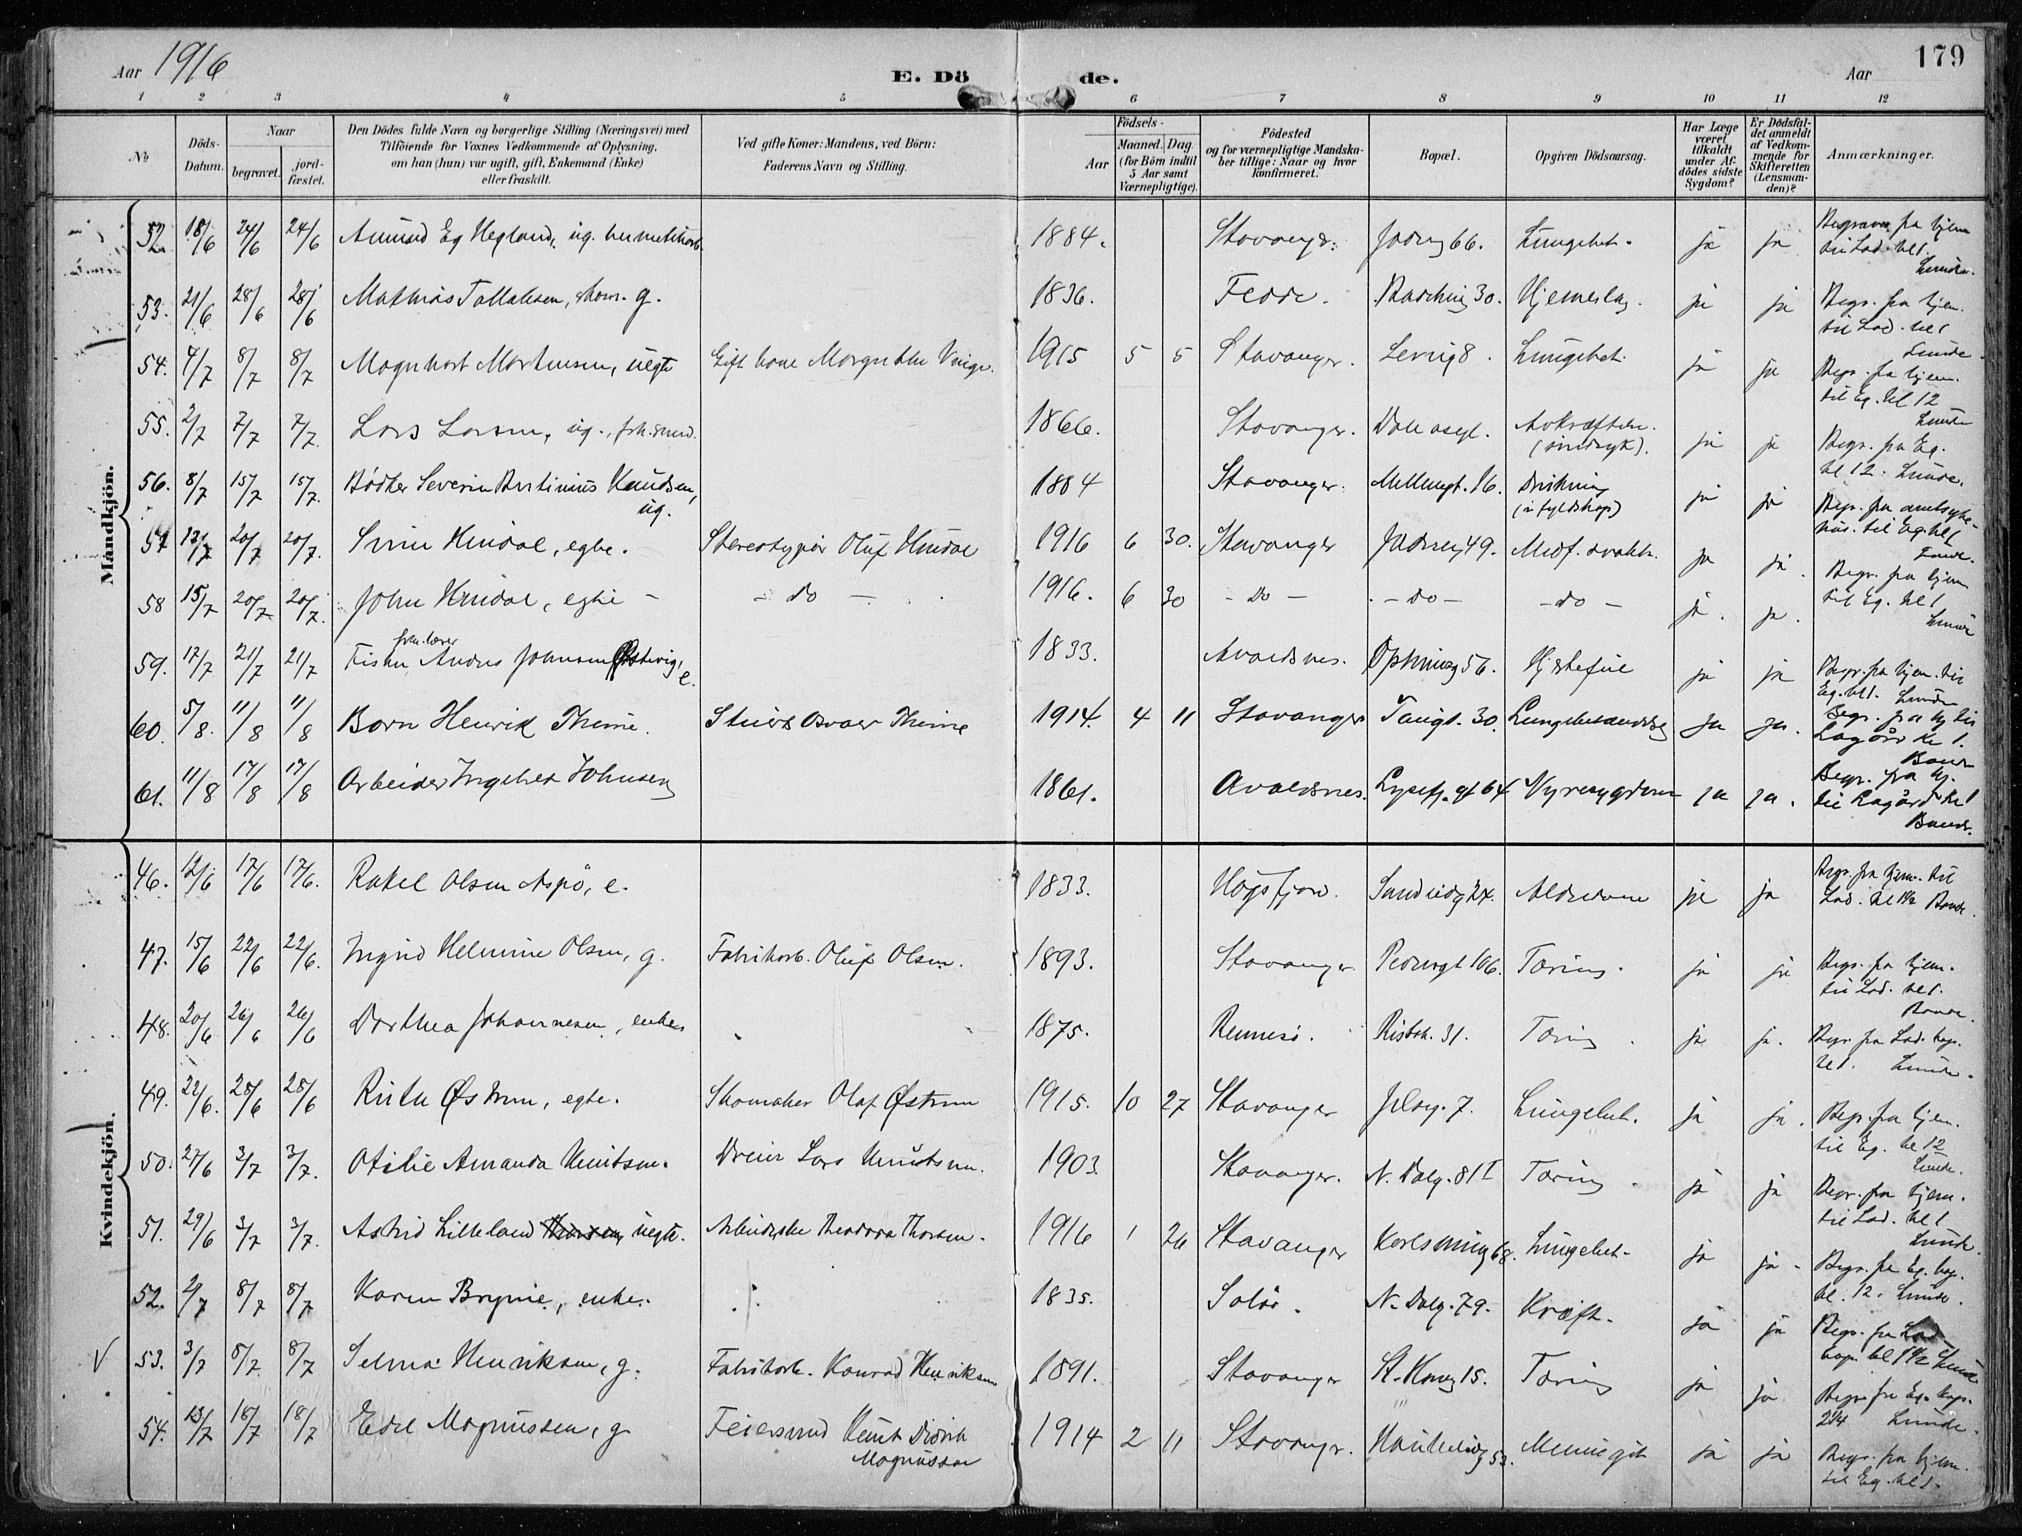 Aar 1916
E. Döde.
Aar
179
1 2 3 4 5 6 7 8 9 10 11 12
No
Döds-Datum.
Naar begravet. jordfæstet.
Den Dödes fulde Navn og borgerlige Stilling (Næringsvei) med Tilföiende for Voxnes Vedkommende af Oplysning, om han (hun) var ugift, gift, Enkemand (Enke) eller fraskilt.
Ved gifte Koner: Mandens, ved Börn: Faderens Navn og Stilling.
Födsels-
Aar Maaned. Dag. (for Börn indtil 5 Aar samt Værnepligtige).
Födested og for værnepligtige Mandskaber tillige: Naar og hvor konfirmeret.
Bopæl.
Opgiven Dödsaarsag.
Har Læge været tilkaldt under Afdödes sidste Sygdom?
Er Dödsfaldet anmeldt af Vedkommende for Skifteretten (Lensmanden)?
Anmærkninger.
Mandkjön.
52. 18/6 24/6 24/6 Amund Eg Hegland, ug. 1884. Stavanger. Jadervg 66. Lungebet. ja ja Begraves fra hjem til Lad. kl 1. Lunde.
53. 21/6 28/6 28/6 Mathias Tollaksen, skom. g. 1836. Fedde. 30. Hjerneslag. ja ja Begr. fra hjem. til Lad. kl 1 Lunde
54. 4/7 8/7 8/7 Magnhart Mortensen, uegte Gift kone Margrethe 1915 5 5 Stavanger. 8. Lungebet. ja ja Begr. fra hjem. til Eg. kl 12 Lunde
55. 2/7 7/7 7/7. Lars Larsen, ug., 1866. Stavanger. Dale asyl. Avkræftelse. (sindssyk). ja ja Begr. fra Eg. kl 12. Lunde.
56. 8/7 15/7 15/7. Bødker Severin Bertinius Knudsen, ug. 1884 Stavanger. 16. Drukning (i fyldskap) ja ja Begr. fra amtsykehus. til Eg kl 1 Lunde.
57 13/7 20/7 20/7. Hindal, egte. Stereotypør Oluf Hindal 1916 6 30. Stavanger Jadervg 49. Medf. svakh. ja ja. Begr. fra hjem til Eg. kl 1 Lunde
58 15/7 20/7 20/7. John Hindal, egte — — do — 1916. 6 30 — Do — — Do — — do — ja. ja.
59. 17/7 21/7 21/7 Fisker Johnsen e. 1833. Avaldsnes. 56. Hjertefeil ja ja Begr. fra hjem. til Eg. kl 1. Lunde
60. 5/8. 11/8 11/8 Barn Henrik Thime. Osvald Thime 1914. 4 11 Stavanger 30. ja ja. Begr. fra hj til Lagård kl 1. Bande
61. 11/8 17/8 17/8 Arbeider Ingebret Johnsen 1861. Avaldsnes. Lysefj. gt 64 Nyresygdom ja ja. Begr. fra hj. til Lagård kl 1 Bande.
Kvindekjön.
46. 12/6 17/6 17/6. Rakel Olsen Aspö, e. 1833. Høgsfjord. 24. Alderdom ja ja Begr. fra hjem. til Lad. kl 1½ Bande.
47. 15/6 22/6 22/6. Ingrid Helmine Olsen, g. Fabrikarb. Oluf Olsen. 1893. Stavanger Pedersgt 106. Tæring. ja ja Begr. fra hjem. til Lad. kl 1. Bande.
48. 20/6 26/6 26/6 Dorthea Johannesen, enke 1875. Rennesö. 31. Tæring. ja ja. Begr. fra Lad. kap. kl 1. Lunde.
49. 22/6. 28/6 28/6 Østrem, egte. Skomaker Olaf Østrem 1915. 10 27 Stavanger 7. Lungebet. ja ja. Begr. fra hjem. til Eg. kl 12 Lunde.
50. 27/6 3/7 3/7. Otilie Amanda Knutsen. Dreier Lars Knutsen. 1903 Stavanger. N. Dalg. 81 I Tæring. ja ja Begr. fra hjem. til Lad. kl 1 Lunde.
51. 29/6 3/7 3/7. Astrid Lilleland uegte. Arbeiderske Theodora Thorsen. 1916 1 26 Stavanger 68. Lungebet. ja ja. Begr. fra Eg. kap. kl. 12. Lunde.
52. 2/7 8/7 8/7 Karen Bryne, enke. 1835. N. Dalg. 79. Kræft. ja ja Begr. fra Lad. kap. kl 1½ Lunde
V 53. 3/7 8/7. 8/7 Selma Henriksen, g. Fabrikarb. Konrad Henriksen 1891. Stavanger 15. Tæring ja ja Begr. fra Eg. kap. Lunde.
54. 13/7 18/7 18/7 Edel Magnussen, g Feiersvend Knut Didrik Magnussen 1914 2 11 Stavanger. 53. ja ja Begr. fra hjem. til Eg. kl 1.